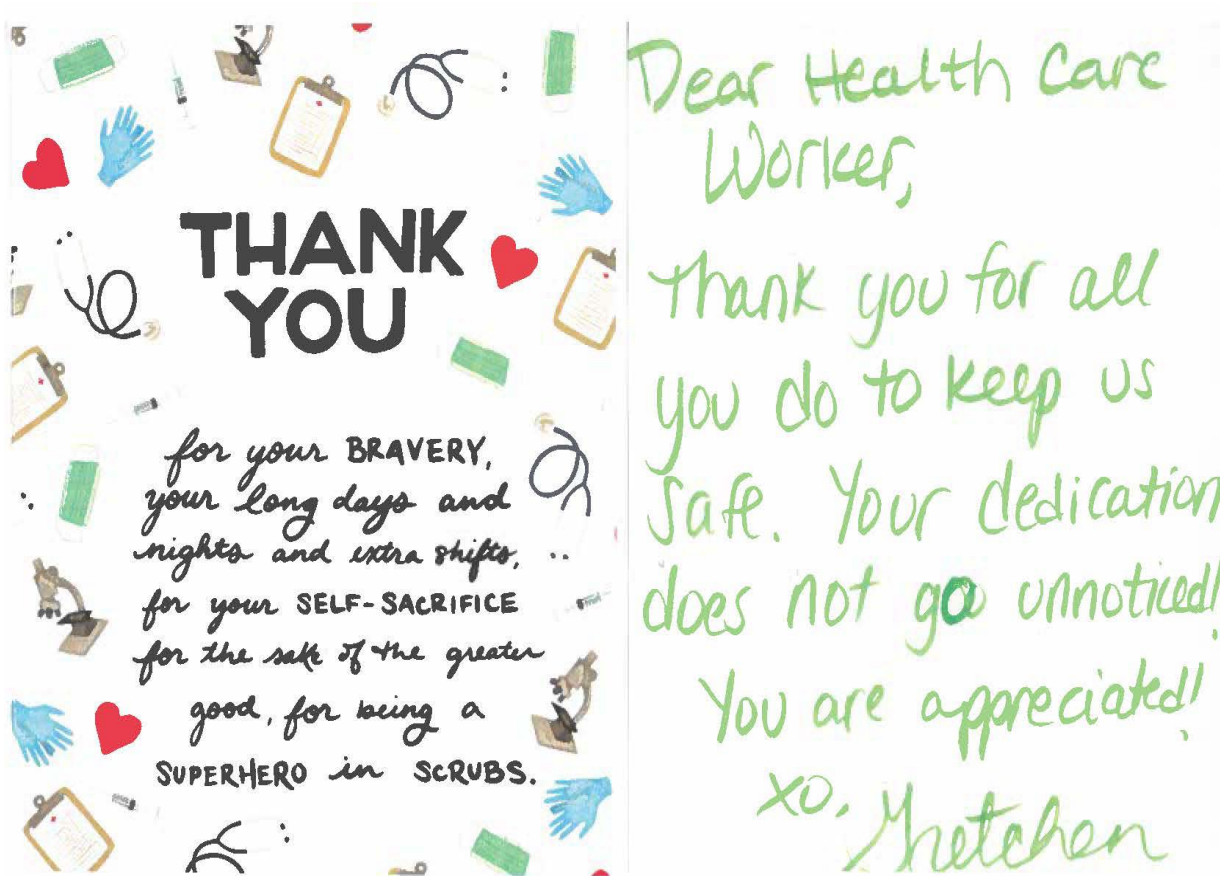 THANK
YOU
for your BRAVERY,
your long days and
nights and extra shifts,
for your SELF-SACRIFICE
for the sake of the greater
good, for being a
SUPERHERO in SCRUBS.
Dear Health Care
Worker,
Thank you for all
you do to keep us
safe. Your dedication
does not go unnoticed!
You are appreciated!
XO,
Gretchen